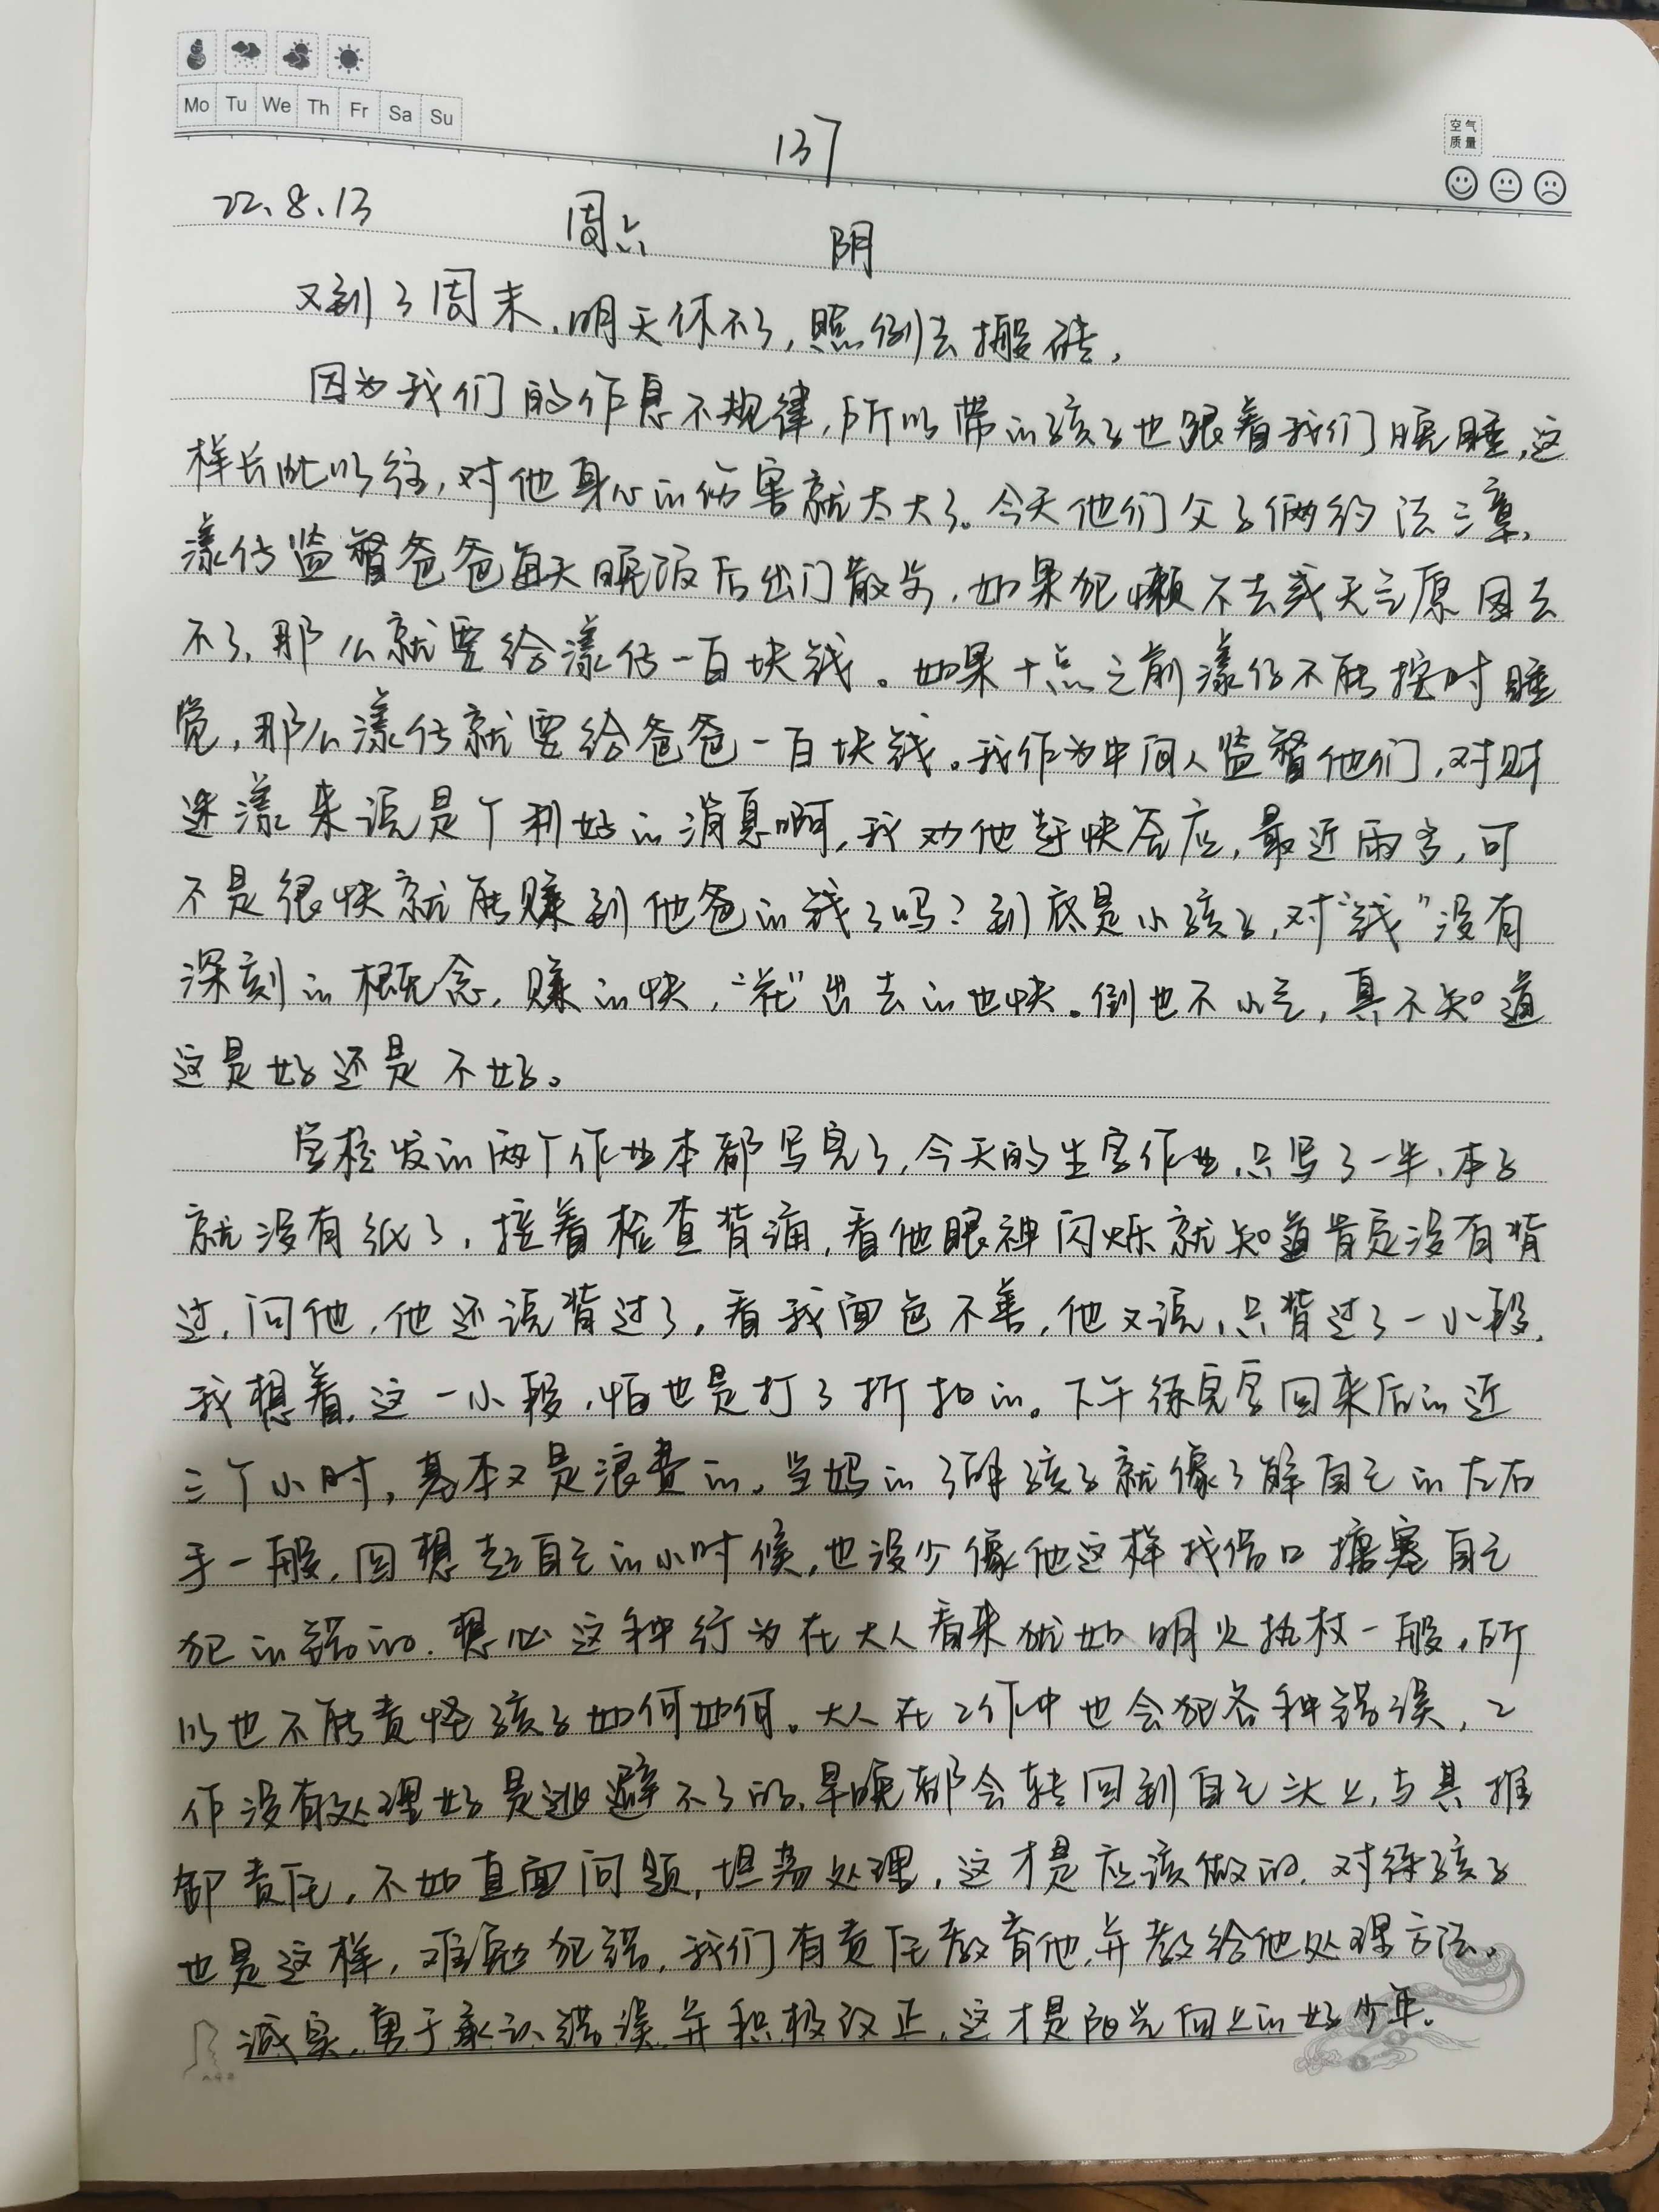 Mo Tu We Th Fr Sa Su
137
空气
质量
22.8.13 周六 阴
又到了周末,明天休不了,照例去搬砖,
因为我们的作息不规律,所以带的孩子也跟着我们晚睡,这
样长此以往,对他身心的伤害就太大了。今天他们父子俩约法三章,
漾仔监督爸爸每天晚饭后出门散步,如果犯懒不去或天气原因去
不了,那么就要给漾仔一百块钱。如果十点之前漾仔不能按时睡
觉,那么漾仔就要给爸爸一百块钱。我作为中间人监督他们,对财
迷漾来说是个利好的消息啊,我劝他赶快答应,最近雨多,可
不是很快就能赚到他爸的钱了吗?到底是小孩子,对“钱”没有
深刻的概念,赚的快,“花”出去的也快。倒也不小气,真不知道
这是好还是不好。
学校发的两个作业本都写完了,今天的生字作业,只写了一半,本子
就没有纸了,接着检查背诵,看他眼神闪烁就知道肯定没有背
过,问他,他还说背过了,看我面色不善,他又说,只背过了一小段,
我想着,这一小段,怕也是打了折扣的。下午练完字回来后的近
三个小时,基本又是浪费的。当妈的了解孩子就像了解自己的左右
手一般,回想起自己的小时候,也没少像他这样找借口搪塞自己
犯的错的。想必这种行为在大人看来犹如明火执杖一般,所
以也不能责怪孩子如何如何。大人在工作中也会犯各种错误,工
作没有处理好是逃避不了的,早晚都会转回到自己头上,与其推
卸责任,不如直面问题,坦荡处理,这才是应该做的。对待孩子
也是这样,难免犯错,我们有责任教育他,并教给他处理方法。
诚实,勇于承认错误并积极改正,这才是阳光向上的好少年。